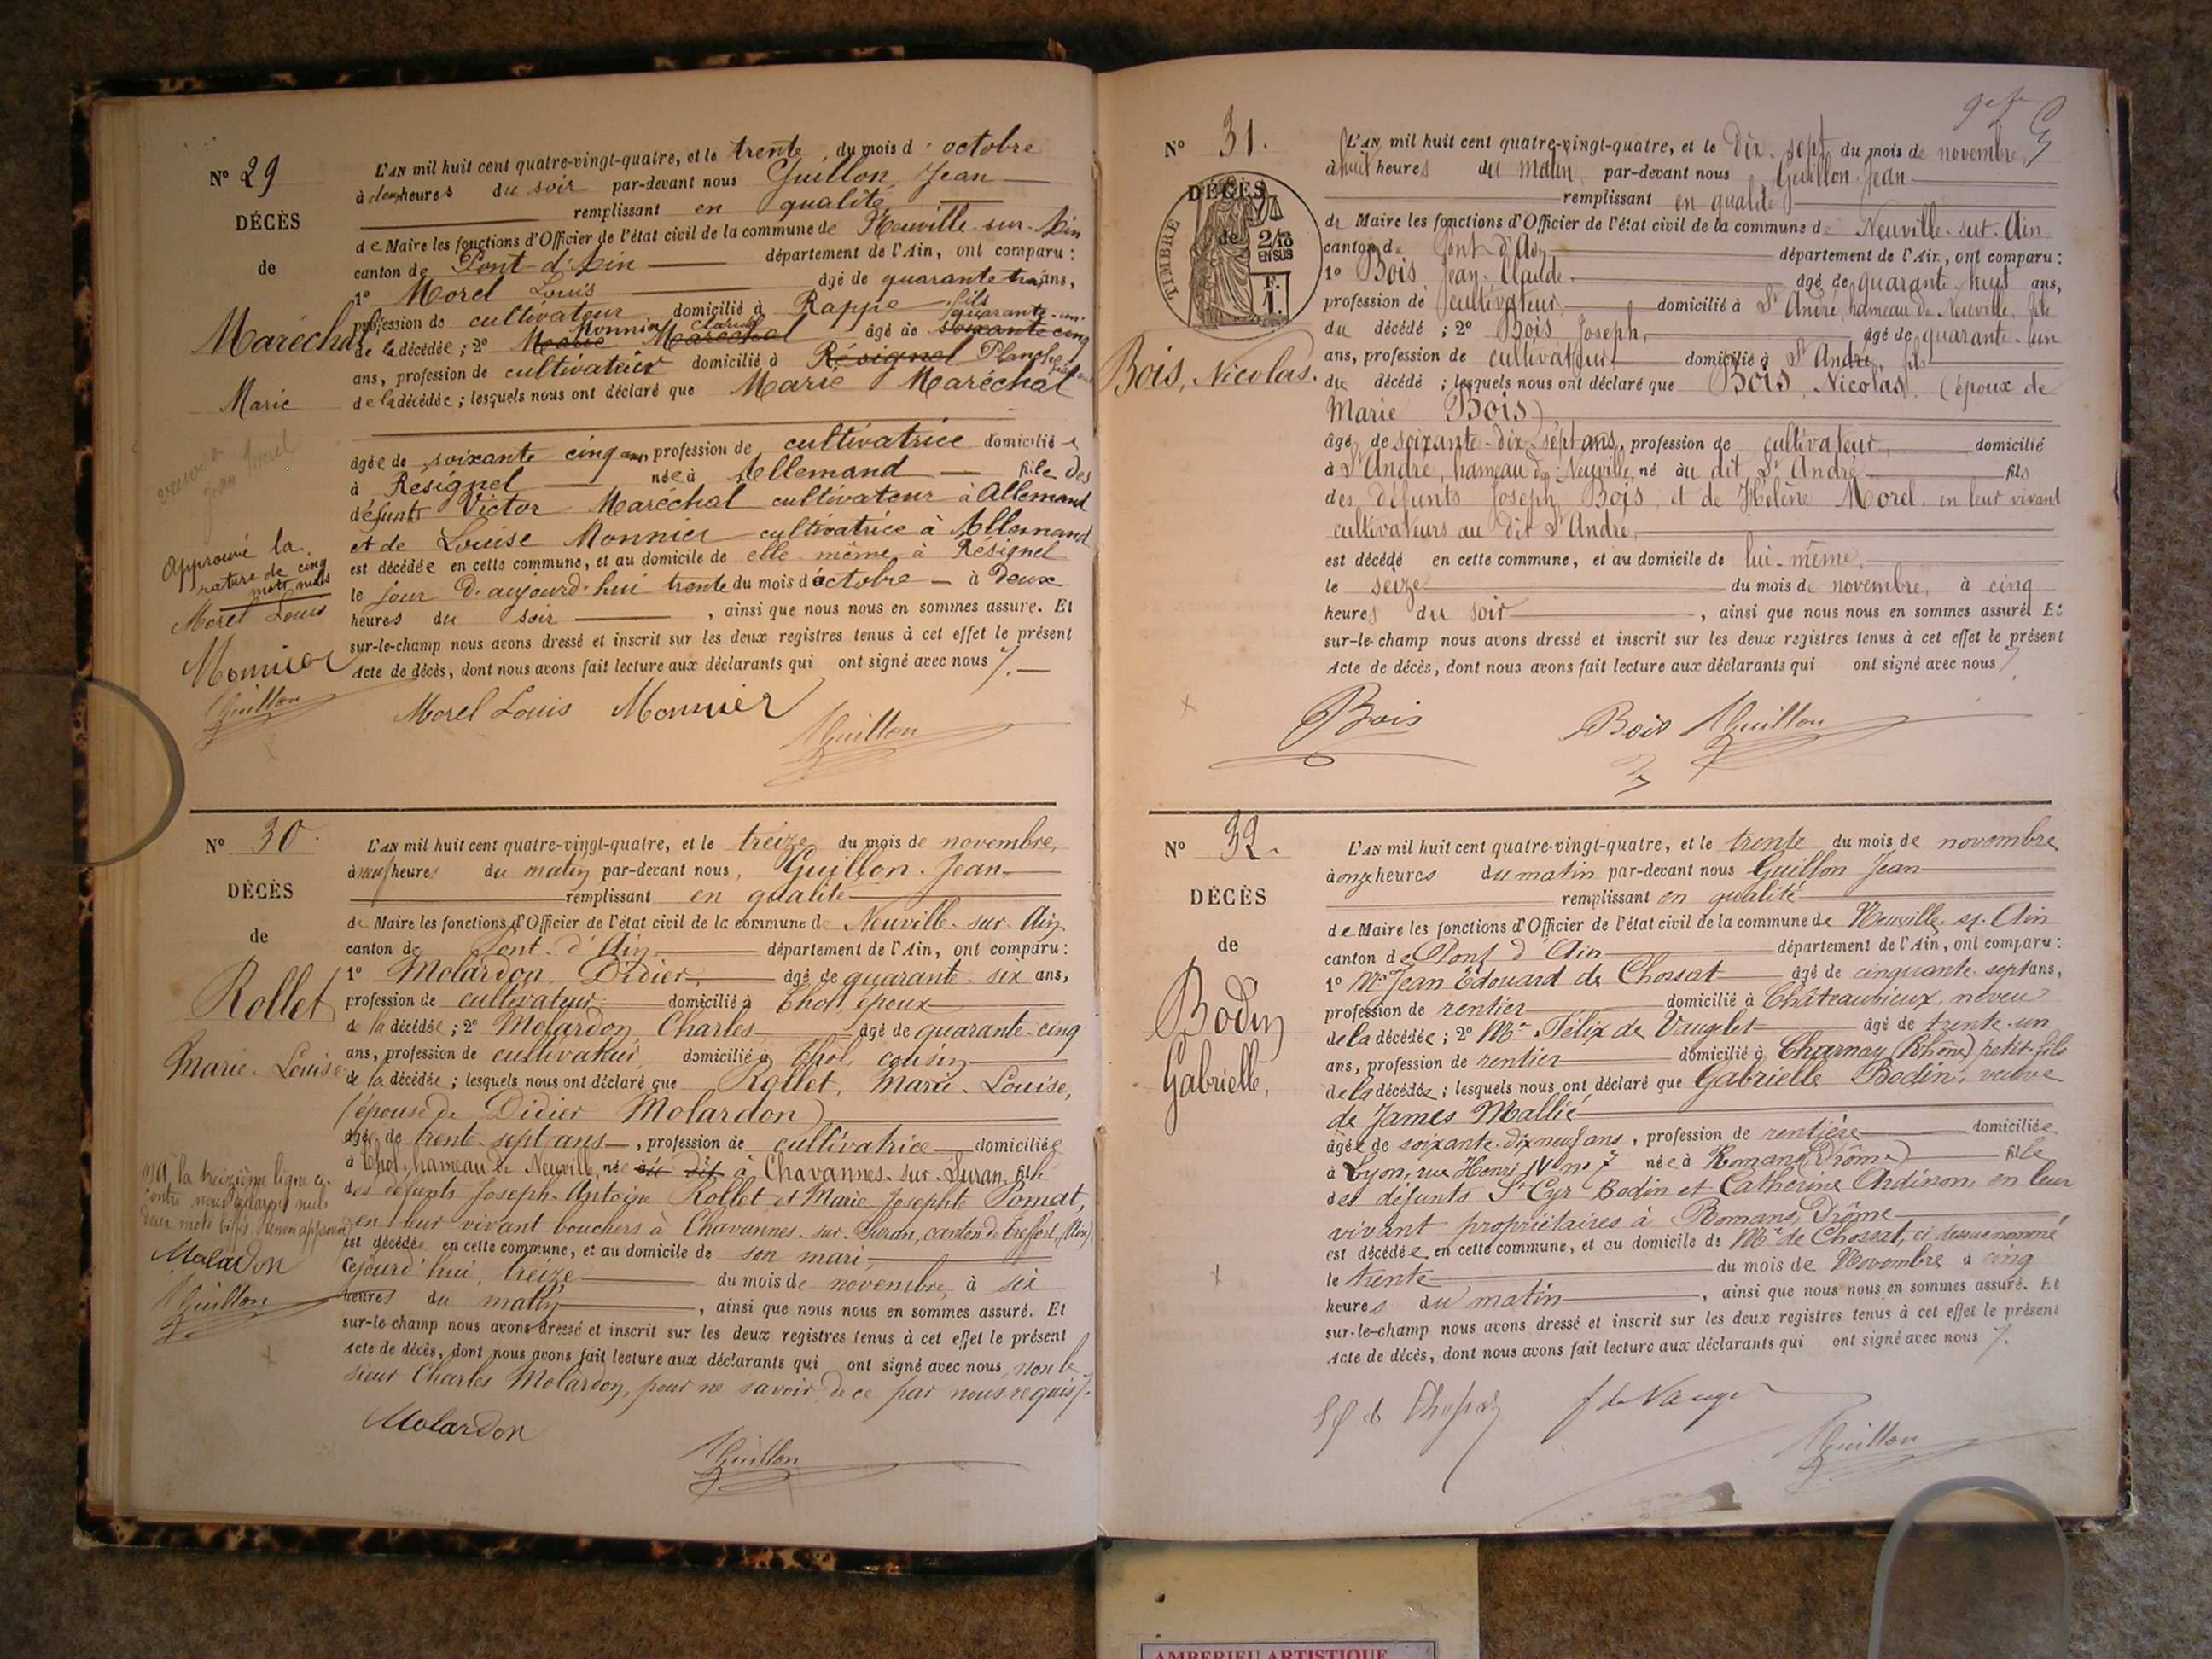 N° 29
DÉCÈS
de
Maréchal
Marie
veuve de
Jean Morel
Approuvé la
rature de cinq
mots nuls
Morel Louis
Monnier
Guillon
L'AN mil huit cent quatre-vingt-quatre, et le trente, du mois d'octobre
à deux heures du soir par-devant nous Guillon Jean
remplissant en qualité
de Maire les fonctions d'Officier de l'état civil de la commune de Neuville-sur-Ain
canton de Pont-d'Ain département de l'Ain, ont comparu :
1° Morel Louis âgé de quarante trois ans,
profession de cultivateur domicilié à Rappe fils
de la décédée ; 2° Marie Maréchal Monnier Claude âgé de soixante cinq quarante-un
ans, profession de cultivateur domicilié à Résignel Planche
de la décédée ; lesquels nous ont déclaré que Marie Maréchal
âgée de soixante cinq ans, profession de cultivatrice domiciliée
à Résignel née à Allemand fille des
défunts Victor Maréchal cultivateur à Allemand
et de Louise Monnier cultivatrice à Allemand
est décédée en cette commune, et au domicile de elle même à Résignel
le jour d'aujourd'hui trente du mois d'octobre à deux
heures du soir, ainsi que nous nous en sommes assuré. Et
sur-le-champ nous avons dressé et inscrit sur les deux registres tenus à cet effet le présent
Acte de décès, dont nous avons fait lecture aux déclarants qui ont signé avec nous
Morel Louis Monnier
Guillon
N° 30
DÉCÈS
de
Rollet
Marie-Louise
à la treizième ligne ci-
contre nous déclarons nuls
deux mots biffés
Molardon
Guillon
L'AN mil huit cent quatre-vingt-quatre, et le treize du mois de novembre,
à neuf heures du matin par-devant nous, Guillon Jean
remplissant en qualité
de Maire les fonctions d'Officier de l'état civil de la commune de Neuville-sur-Ain
canton de Pont-d'Ain département de l'Ain, ont comparu :
1° Molardon Didier, âgé de quarante-six ans,
profession de cultivateur domicilié à Thol, époux
de la décédée ; 2° Molardon Charles âgé de quarante-cinq
ans, profession de cultivateur domicilié à Thol, cousin
de la décédée ; lesquels nous ont déclaré que Rollet, Marie-Louise,
(épouse de Didier Molardon)
âgée de trente-sept ans, profession de cultivatrice domiciliée
à Thol, hameau de Neuville, née au dit à Chavannes-sur-Suran, fille
des défunts Joseph-Antoine Rollet et Marie Josephte Pomat,
en leur vivant bouchers à Chavannes-sur-Suran, canton de Treffort (Ain)
est décédée en cette commune, et au domicile de son mari,
cejourd'hui, treize du mois de novembre, à six
heures du matin, ainsi que nous nous en sommes assuré. Et
sur-le-champ nous avons dressé et inscrit sur les deux registres tenus à cet effet le présent
Acte de décès, dont nous avons fait lecture aux déclarants qui ont signé avec nous, non le
sieur Charles Molardon, pour ne savoir, de ce par nous requis
Molardon
Guillon
N° 31.
TIMBRE
2/10
EN SUS
F.
1.
DÉCÈS
de
Bois, Nicolas.
L'AN mil huit cent quatre-vingt-quatre, et le Dix-sept du mois de novembre,
à huit heures du matin, par-devant nous Guillon Jean
remplissant en qualité
de Maire les fonctions d'Officier de l'état civil de la commune de Neuville-sur-Ain
canton de Pont-d'Ain département de l'Ain, ont comparu :
1° Bois Jean-Claude âgé de quarante-huit ans,
profession de cultivateur, domicilié à St André, hameau de Neuville, fils
du décédé ; 2° Bois Joseph, âgé de quarante-un
ans, profession de cultivateur domicilié à St André, fils
du décédé ; lesquels nous ont déclaré que Bois, Nicolas, (époux de
Marie Bois)
âgé de soixante-dix-sept ans, profession de cultivateur, domicilié
à St André, hameau de Neuville, né au dit St André fils
des défunts Joseph Bois et de Hélène Morel, en leur vivant
cultivateurs au dit St André,
est décédé en cette commune, et au domicile de lui-même,
le seize du mois de novembre, à cinq
heures du soir, ainsi que nous nous en sommes assuré. Et
sur-le-champ nous avons dressé et inscrit sur les deux registres tenus à cet effet le présent
Acte de décès, dont nous avons fait lecture aux déclarants qui ont signé avec nous
Bois Bois Guillon
N° 32.
DÉCÈS
de
Bodin
Gabrielle,
L'AN mil huit cent quatre-vingt-quatre, et le trente du mois de novembre
à onze heures du matin par-devant nous Guillon Jean
remplissant en qualité
de Maire les fonctions d'Officier de l'état civil de la commune de Neuville-s-Ain
canton de Pont d'Ain département de l'Ain, ont comparu :
1° Mr Jean Edouard de Chossat âgé de cinquante-sept ans,
profession de rentier domicilié à Châteauvieux, neveu
de la décédée ; 2° Mr Félix de Vaugelet âgé de trente-un
ans, profession de rentier domicilié à Charnay (Rhône) petit-fils
de la décédée ; lesquels nous ont déclaré que Gabrielle Bodin, veuve
de James Mallié
âgée de soixante-dix neuf ans, profession de rentière domiciliée
à Lyon, rue Henri IV n° 7 née à Romans (Drôme) fille
des défunts St Cyr Bodin et Catherine Ardinon, en leur
vivant propriétaires à Romans, Drôme
est décédée en cette commune, et au domicile de Mr de Chossat, ci dessus nommé
le trente du mois de Novembre à cinq
heures du matin, ainsi que nous nous en sommes assuré. Et
sur-le-champ nous avons dressé et inscrit sur les deux registres tenus à cet effet le présent
Acte de décès, dont nous avons fait lecture aux déclarants qui ont signé avec nous
Guillon
AMBERIEU ARTISTIQUE